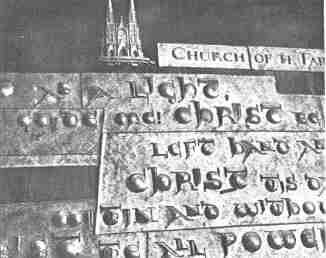 CHURCH OF THE FAI
AS A LIGHT,
GUIDE ME! CHRIST BE
LEFT HAND A
CHRIST THIS D
WITHIN AND WITHOU
THE ALL POWE